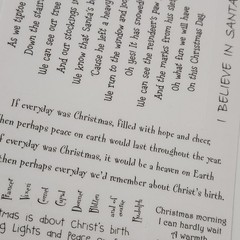 As we tiptoe
Down the stairs
We can see our tree
And our stockings
We know that Santa's
'Cause he left a heavy
We run to the window and
Oh yes! It has snowed
We can see the reindeer's
And the marks from his
Oh what fun we will have
On this Christmas Day
I BELIEVE IN SANTA
If everyday was Christmas, filled with hope and cheer,
then perhaps peace on earth would last throughout the year.
If everyday was Christmas, it would be a heaven on Earth
then perhaps everyday we'd remember about Christ's birth.
Prancer
Vixen
Comet
Cupid
Donner
Blitzen
and of
Rudolph
Christmas morning
I can hardly wait
A warmth
is about Christ's birth
Lights and Peace on